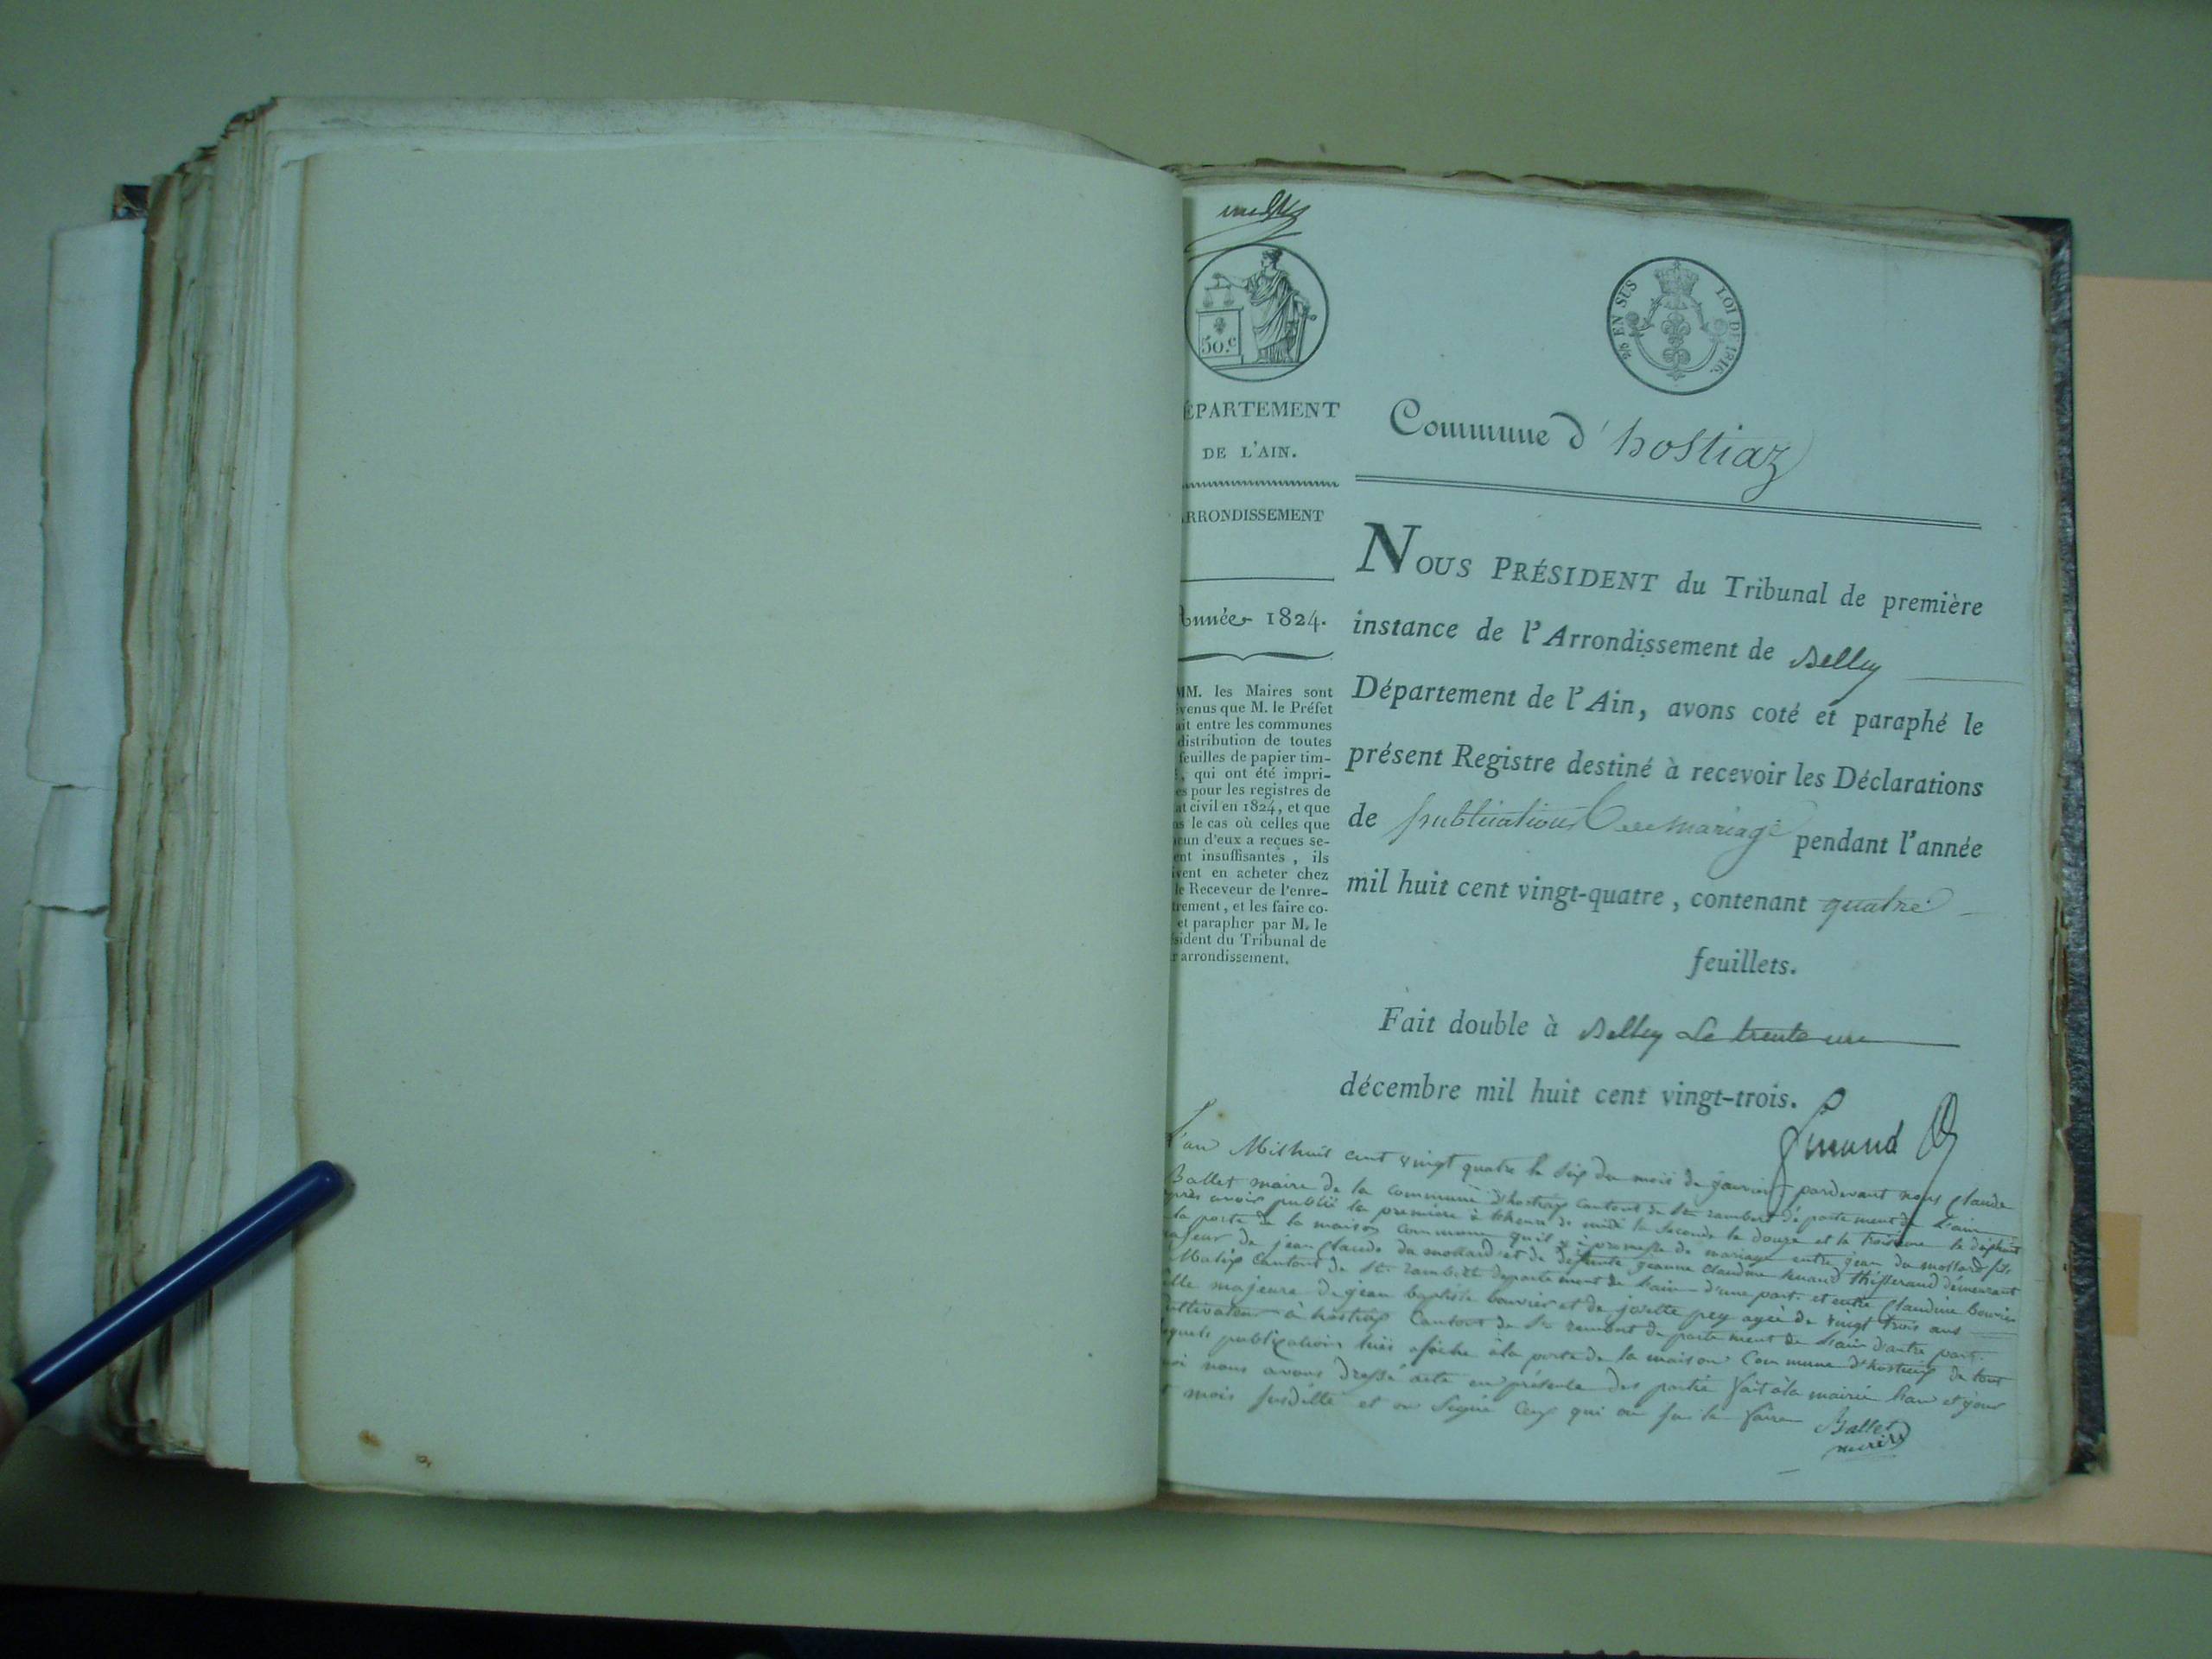 50.c
¾ EN SUS LOI DE 1816.
ÉPARTEMENT
DE L'AIN.
RRONDISSEMENT
Année 1824.
MM. les Maires sont
évenus que M. le Préfet
ait entre les communes
distribution de toutes
feuilles de papier tim-
é, qui ont été impri-
es pour les registres de
at civil en 1824, et que
ns le cas où celles que
acun d'eux a reçues se-
ent insuffisantes, ils
ivent en acheter chez
le Receveur de l'enre-
trement, et les faire co-
et parapher par M. le
ésident du Tribunal de
r arrondissement.
Commune d'hostiaz
NOUS PRÉSIDENT du Tribunal de première
instance de l'Arrondissement de Belley
Département de l'Ain, avons coté et paraphé le
présent Registre destiné à recevoir les Déclarations
de publications de mariage pendant l'année
mil huit cent vingt-quatre, contenant quatre
feuillets.
Fait double à Belley Le trente un
décembre mil huit cent vingt-trois.
L'an Mil huit cent vingt quatre le six du mois de janvier pardevant nous Claude
Ballet maire de la commune d'hostiaz Canton de St rambert département de L'ain
après avoir publié la première à heure de midi la seconde le douze et la troisième le dixhuit
la porte de la maison commune qu'il y à promesse de mariage entre jean du mollard fils
majeur de jean Claude du mollard et de défunte jeanne Claudine thisserand demeurant
Canton de St rambert département de L'ain d'une part. et entre Claudine Bouvier
fille majeure de jean baptiste bouvier et de josette pey agée de vingt trois ans
cultivateur à hostiaz Canton de St rambert departement de L'ain d'autre part.
publications afiche à la porte de la maison Commune d'hostiaz de tout
quoi nous avons dressé acte en présente des partie fait à la mairie L'an et jour
et mois susditte et on signé Ceux qui on su le faire
Ballet
maire